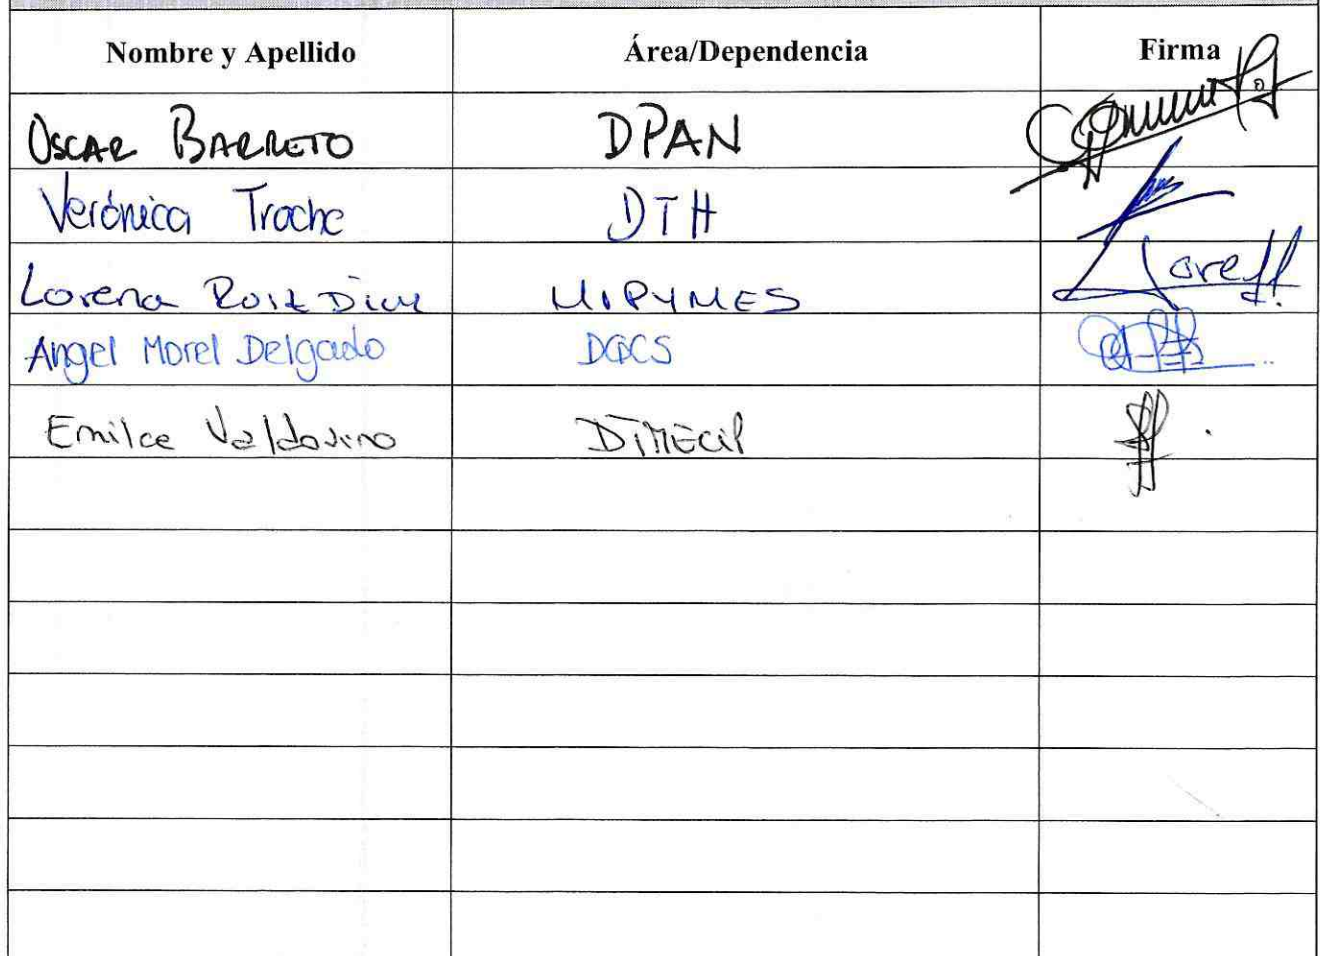 Nombre y Apellido Área/Dependencia Firma
Oscar Barreto DPAN
Verónica Troche DTH
Lorena Ruiz Diaz MIPYMES
Angel Morel Delgado DGCS
Emilce Valdovino